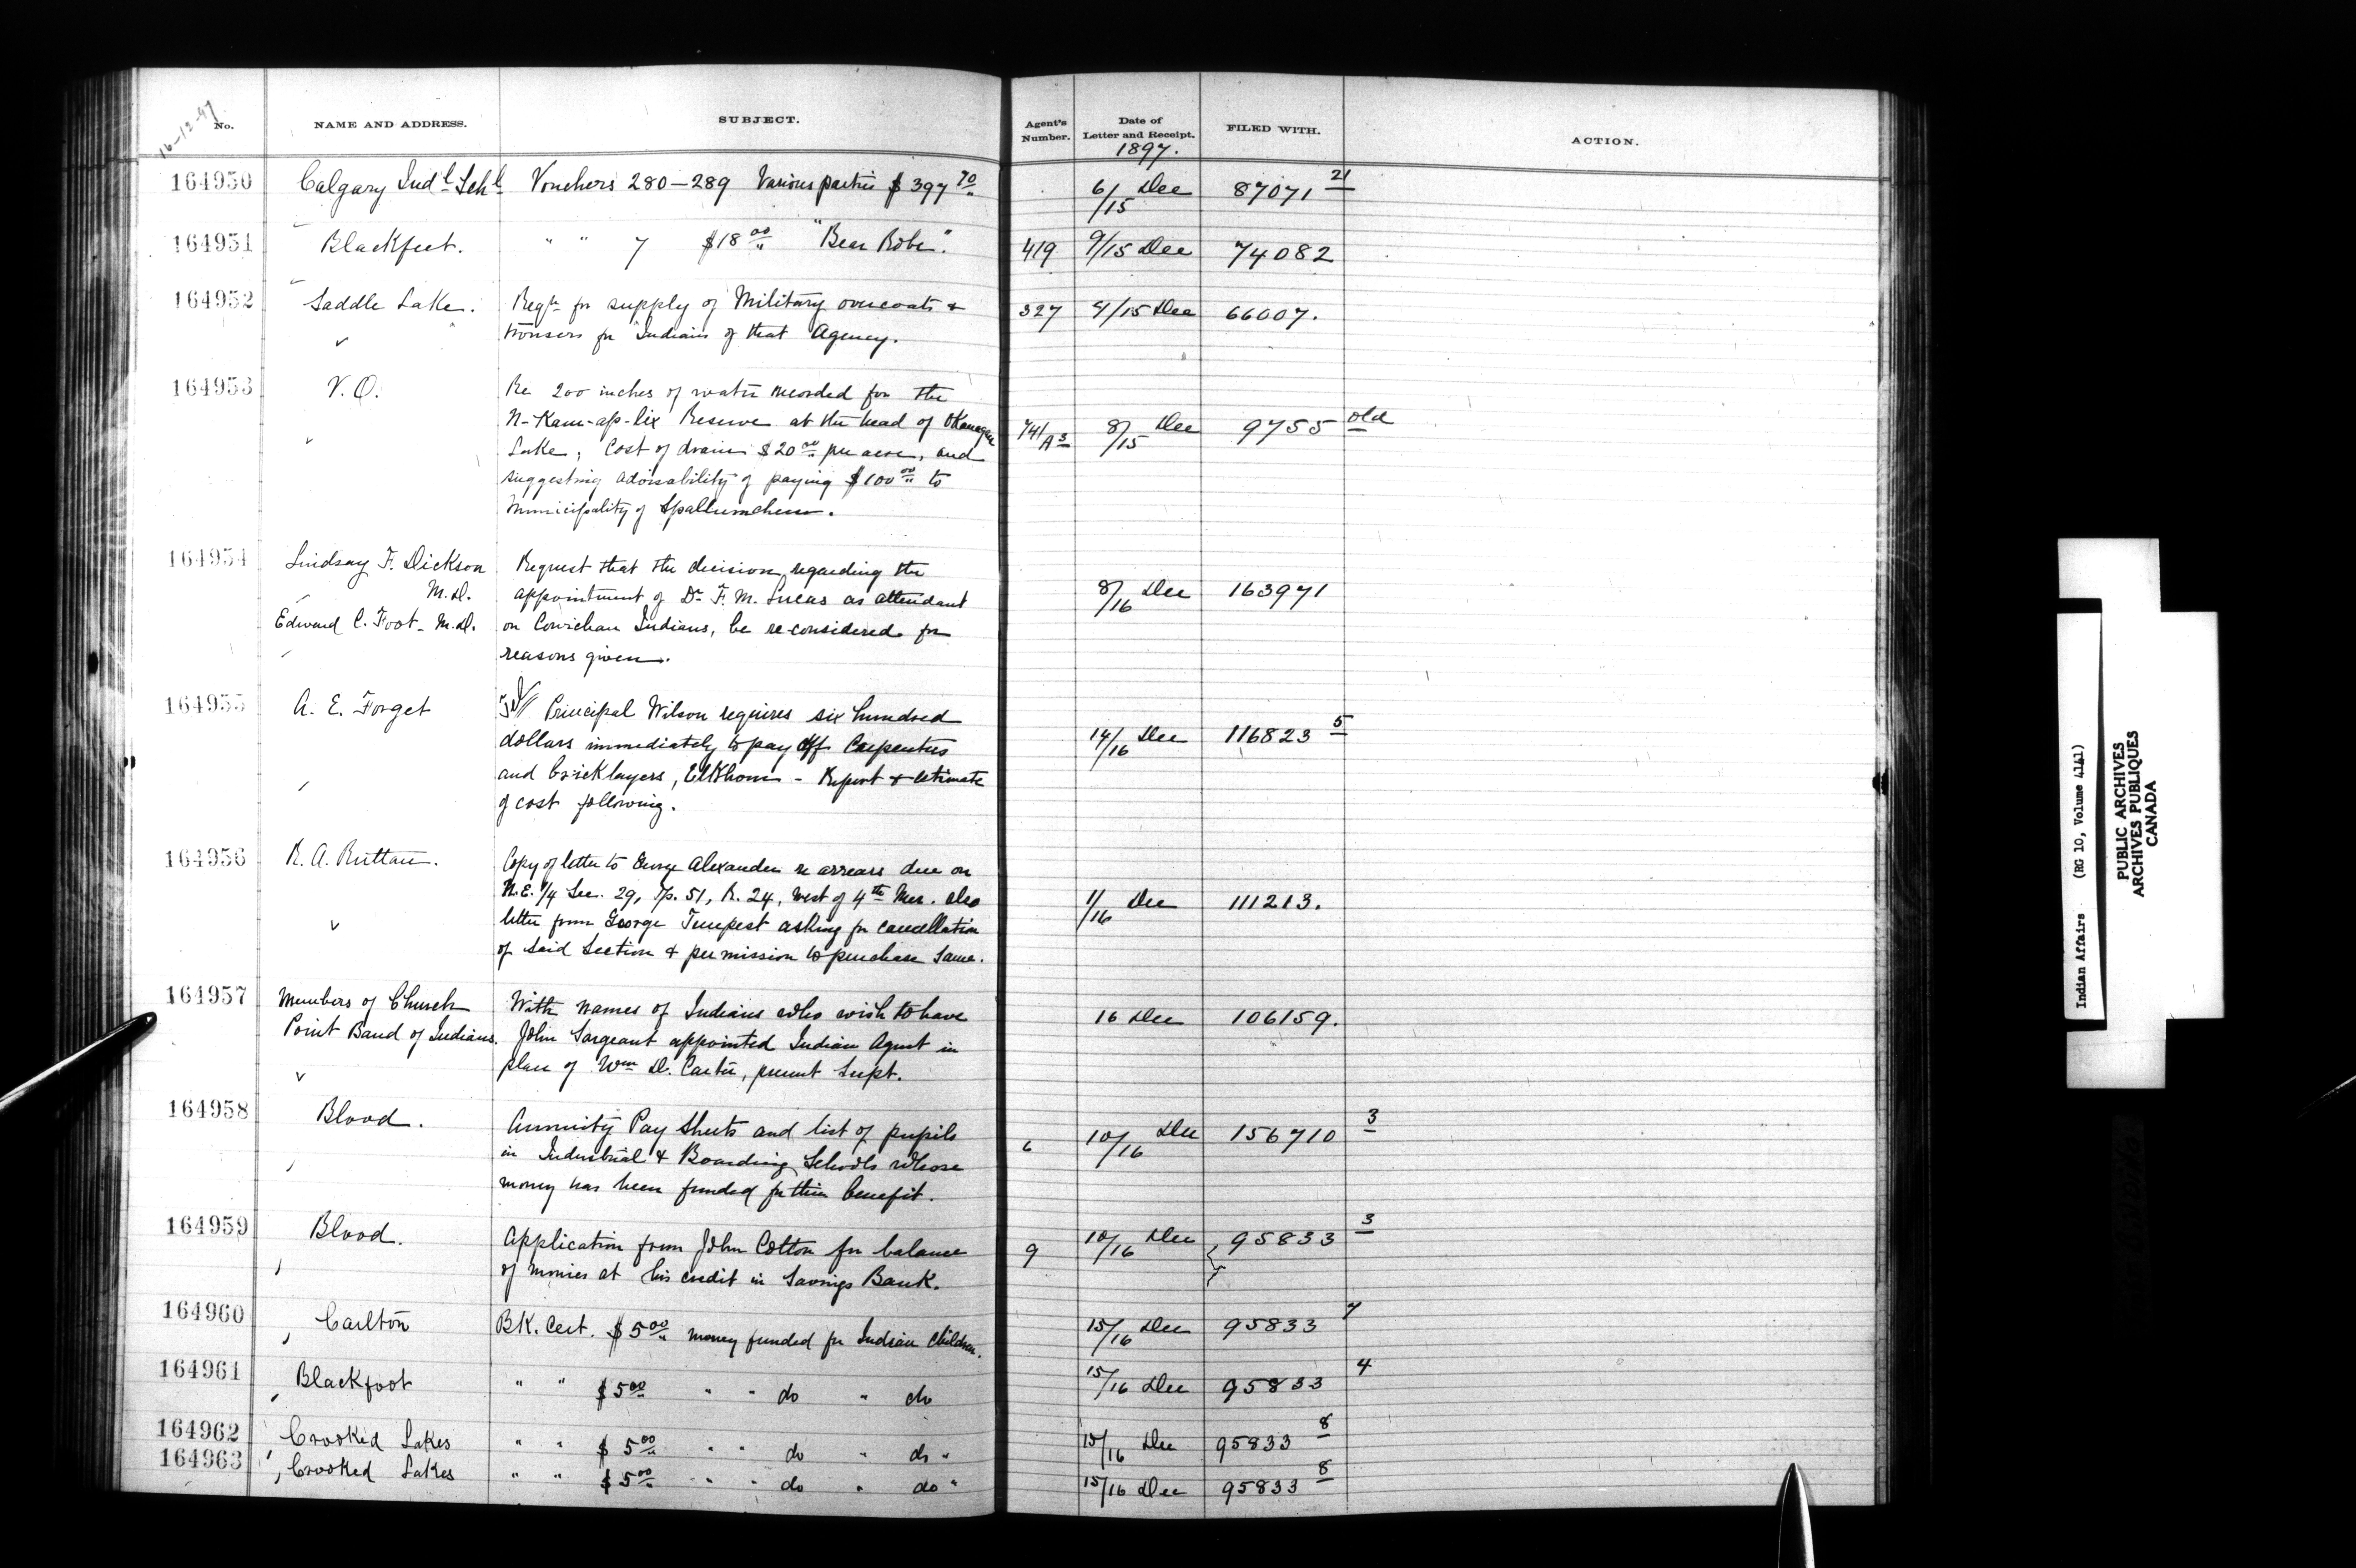 16-12-97
No. NAME AND ADDRESS. SUBJECT. Agent's Number. Date of Letter and Receipt. FILED WITH. ACTION.
1897.
164950 Calgary Ind'l Sch'l Vouchers 280-289 Various parties $397 70 6/15 Dec 87071 21
164951 Blackfeet. " " 7 $18 00 "Bear Robe". 419 9/15 Dec 74082
164952 Saddle Lake. Reqn for supply of Military overcoats &
trousers for Indians of that Agency. 327 4/15 Dec 66007.
164953 V.O. Re 200 inches of water recorded for the
N-Kam-ap-lix Reserve at the head of Okanagan
Lake; Cost of drain $20 00 per acre, and
suggesting advisability of paying $100 00 to
Municipality of Spallumcheen. 741/A3 8/15 Dec 9755 old
164954 Lindsay F. Dickson M.D.
Edward C. Foot - M.D.
Request that the decision regarding the
appointment of Dr F. M. Lucas as attendant
on Cowichan Indians, be re-considered for
reasons given. 8/16 Dec 163971
164955 A. E. Forget Principal Wilson requires six hundred
dollars immediately to pay off Carpenters
and bricklayers, Elkhorn - Report & estimate
of cost following. 14/16 Dec 116823 5
164956 R. A. Ruttan. Copy of letter to George Alexander re arrears due on
N.E. 1/4 Sec. 29, Tp. 51, R. 24, West of 4th Mer. also
letter from George Tempest asking for cancellation
of said Section & permission to purchase same. 1/16 Dec 111213.
164957 Members of Church
Point Band of Indians.
With names of Indians who wish to have
John Sargeant appointed Indian Agent in
place of Wm D. Carter, present Supt. 16 Dec 106159.
164958 Blood. Annuity Pay Sheets and list of pupils
in Industrial & Boarding Schools whose
money has been funded for their benefit. 6 10/16 Dec 156710 3
164959 Blood. Application from John Cotton for balance
of monies at his credit in Savings Bank. 9 10/16 Dec 95833 3
164960 Carlton BK. Cert. $5 00 money funded for Indian Children. 15/16 Dec 95833 7
164961 Blackfoot " " $5 00 " " do " do 15/16 Dec 95833 4
164962 Crooked Lakes " " $5 00 " " do " do " 15/16 Dec 95833 8
164963 Crooked Lakes " " $5 00 " " do " do " 15/16 Dec 95833 8
Indian Affairs (RG 10, Volume 4141)
PUBLIC ARCHIVES
ARCHIVES PUBLIQUES
CANADA